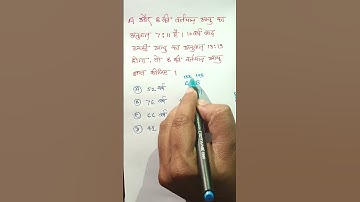 A और B की वर्तमान आयु का
अनुपात 7:11 है। 10 वर्ष बाद
उनकी आयु का अनुपात 13:19
होगा, तो B की वर्तमान आयु
ज्ञात कीजिए।
A 52 वर्ष
B 76 वर्ष
C 66 वर्ष
D 49